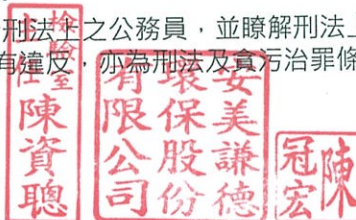 刑法上之公務員，並瞭解刑法上
有違反，亦為刑法及貪污治罪條
檢驗室
主任
陳資聰
安美謙德
環保股份
有限公司
陳冠宏